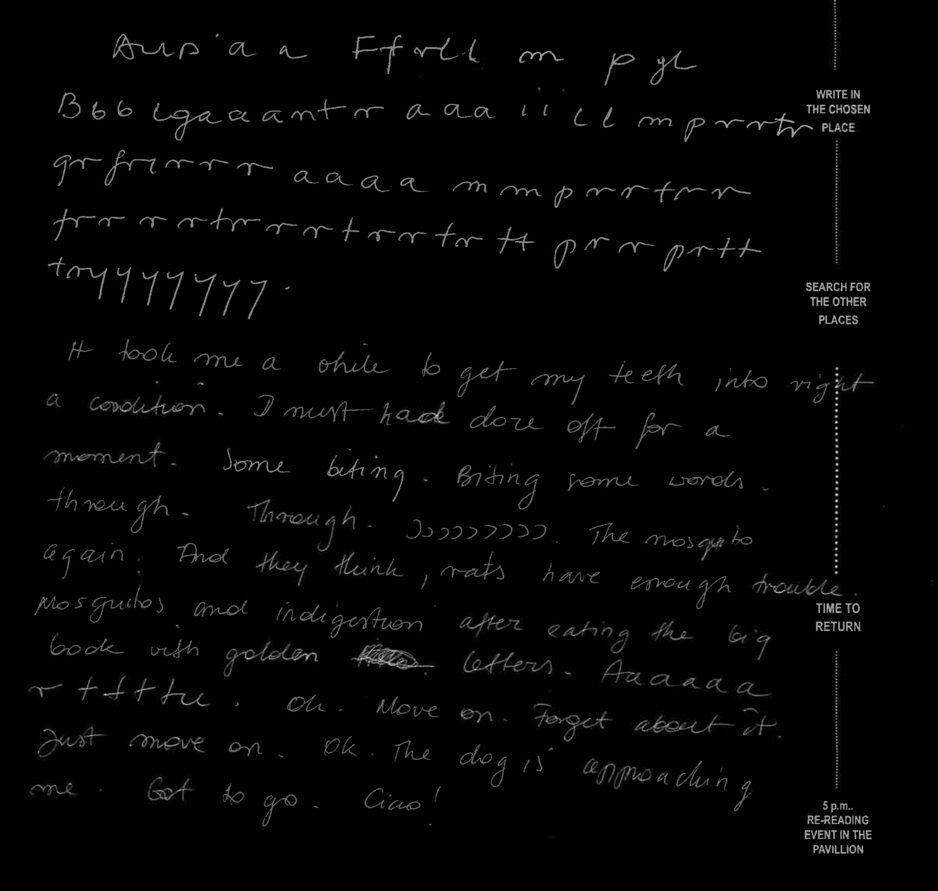 Aus'a a Ffrll m p gl
B66 lgaaantr aaa ii ll mprrrtr
gr frırrrr aaaa mmprrrtrrr
frr r rtrrrrtrrrtrtt prrprtt
tryyyyyyyy.
It took me a while to get my teeth into right
a condition. I must had doze off for a
moment. Some biting. Biting some words.
through. Through. ))))))))). The mosquito
again. And they think, rats have enough trouble.
Mosquitos and indigestion after eating the big
book with golden letters. Aaaaaa
r ttttu. Oh. Move on. Forget about it.
Just move on. Ok. The dog is approaching
me. Got to go. Ciao!
WRITE IN
THE CHOSEN
PLACE
SEARCH FOR
THE OTHER
PLACES
TIME TO
RETURN
5 p.m..
RE-READING
EVENT IN THE
PAVILLION